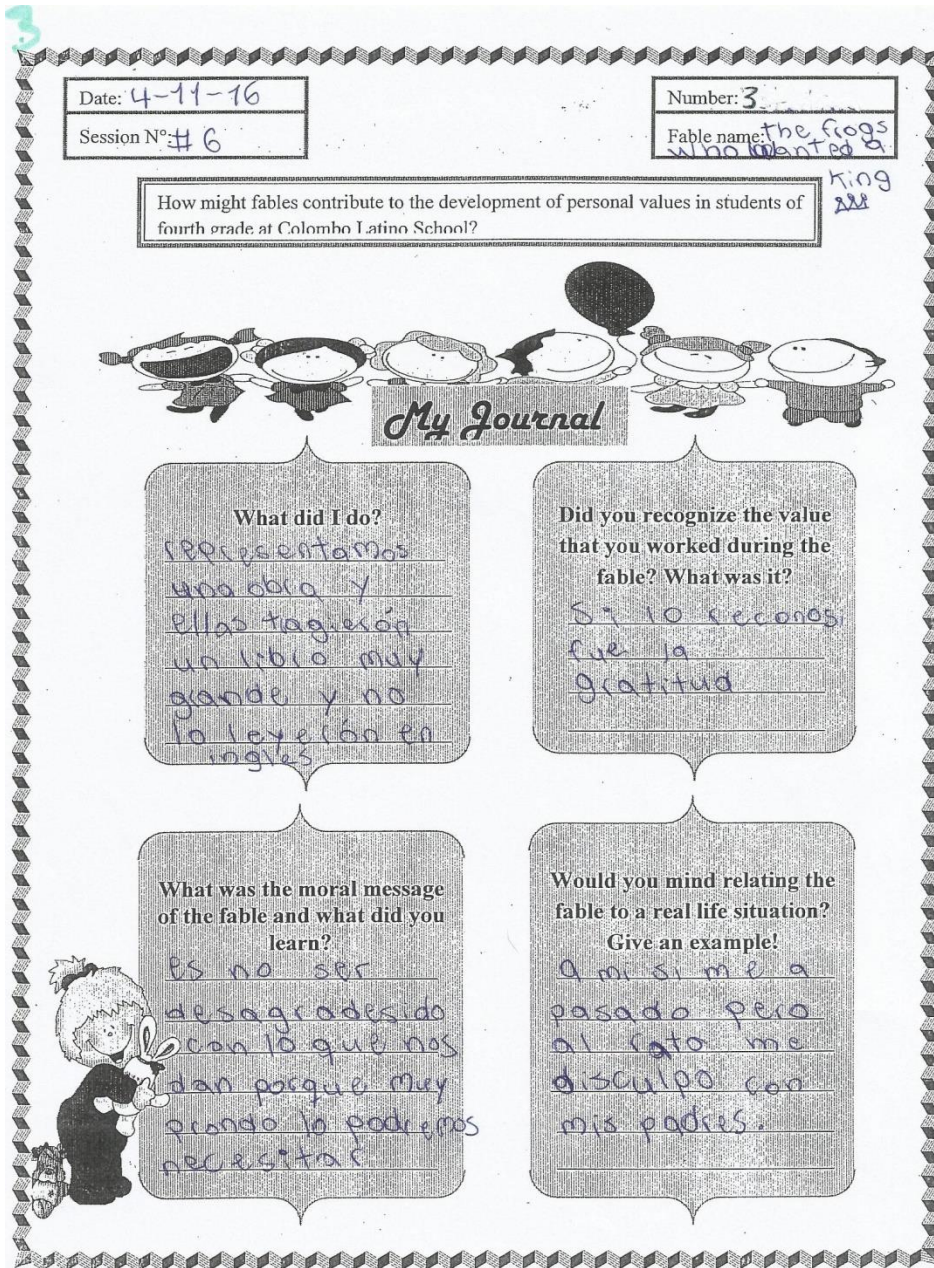 3
Date: 4-11-16
Session N°: # 6
Number: 3
Fable name: the frogs
who wanted a
King
How might fables contribute to the development of personal values in students of
fourth grade at Colombo Latino School?
My Journal
What did I do?
representamos
una obra y
ellas tragierón
un libro muy
grande y no
lo leyerón en
ingles
Did you recognize the value
that you worked during the
fable? What was it?
Si lo reconosi
fue la
gratitud
What was the moral message
of the fable and what did you
learn?
es no ser
desagradesido
con lo que nos
dan porque muy
prondo lo podremos
necesitar
Would you mind relating the
fable to a real life situation?
Give an example!
a mi si me a
pasado pero
al rato me
disculpo con
mis padres.